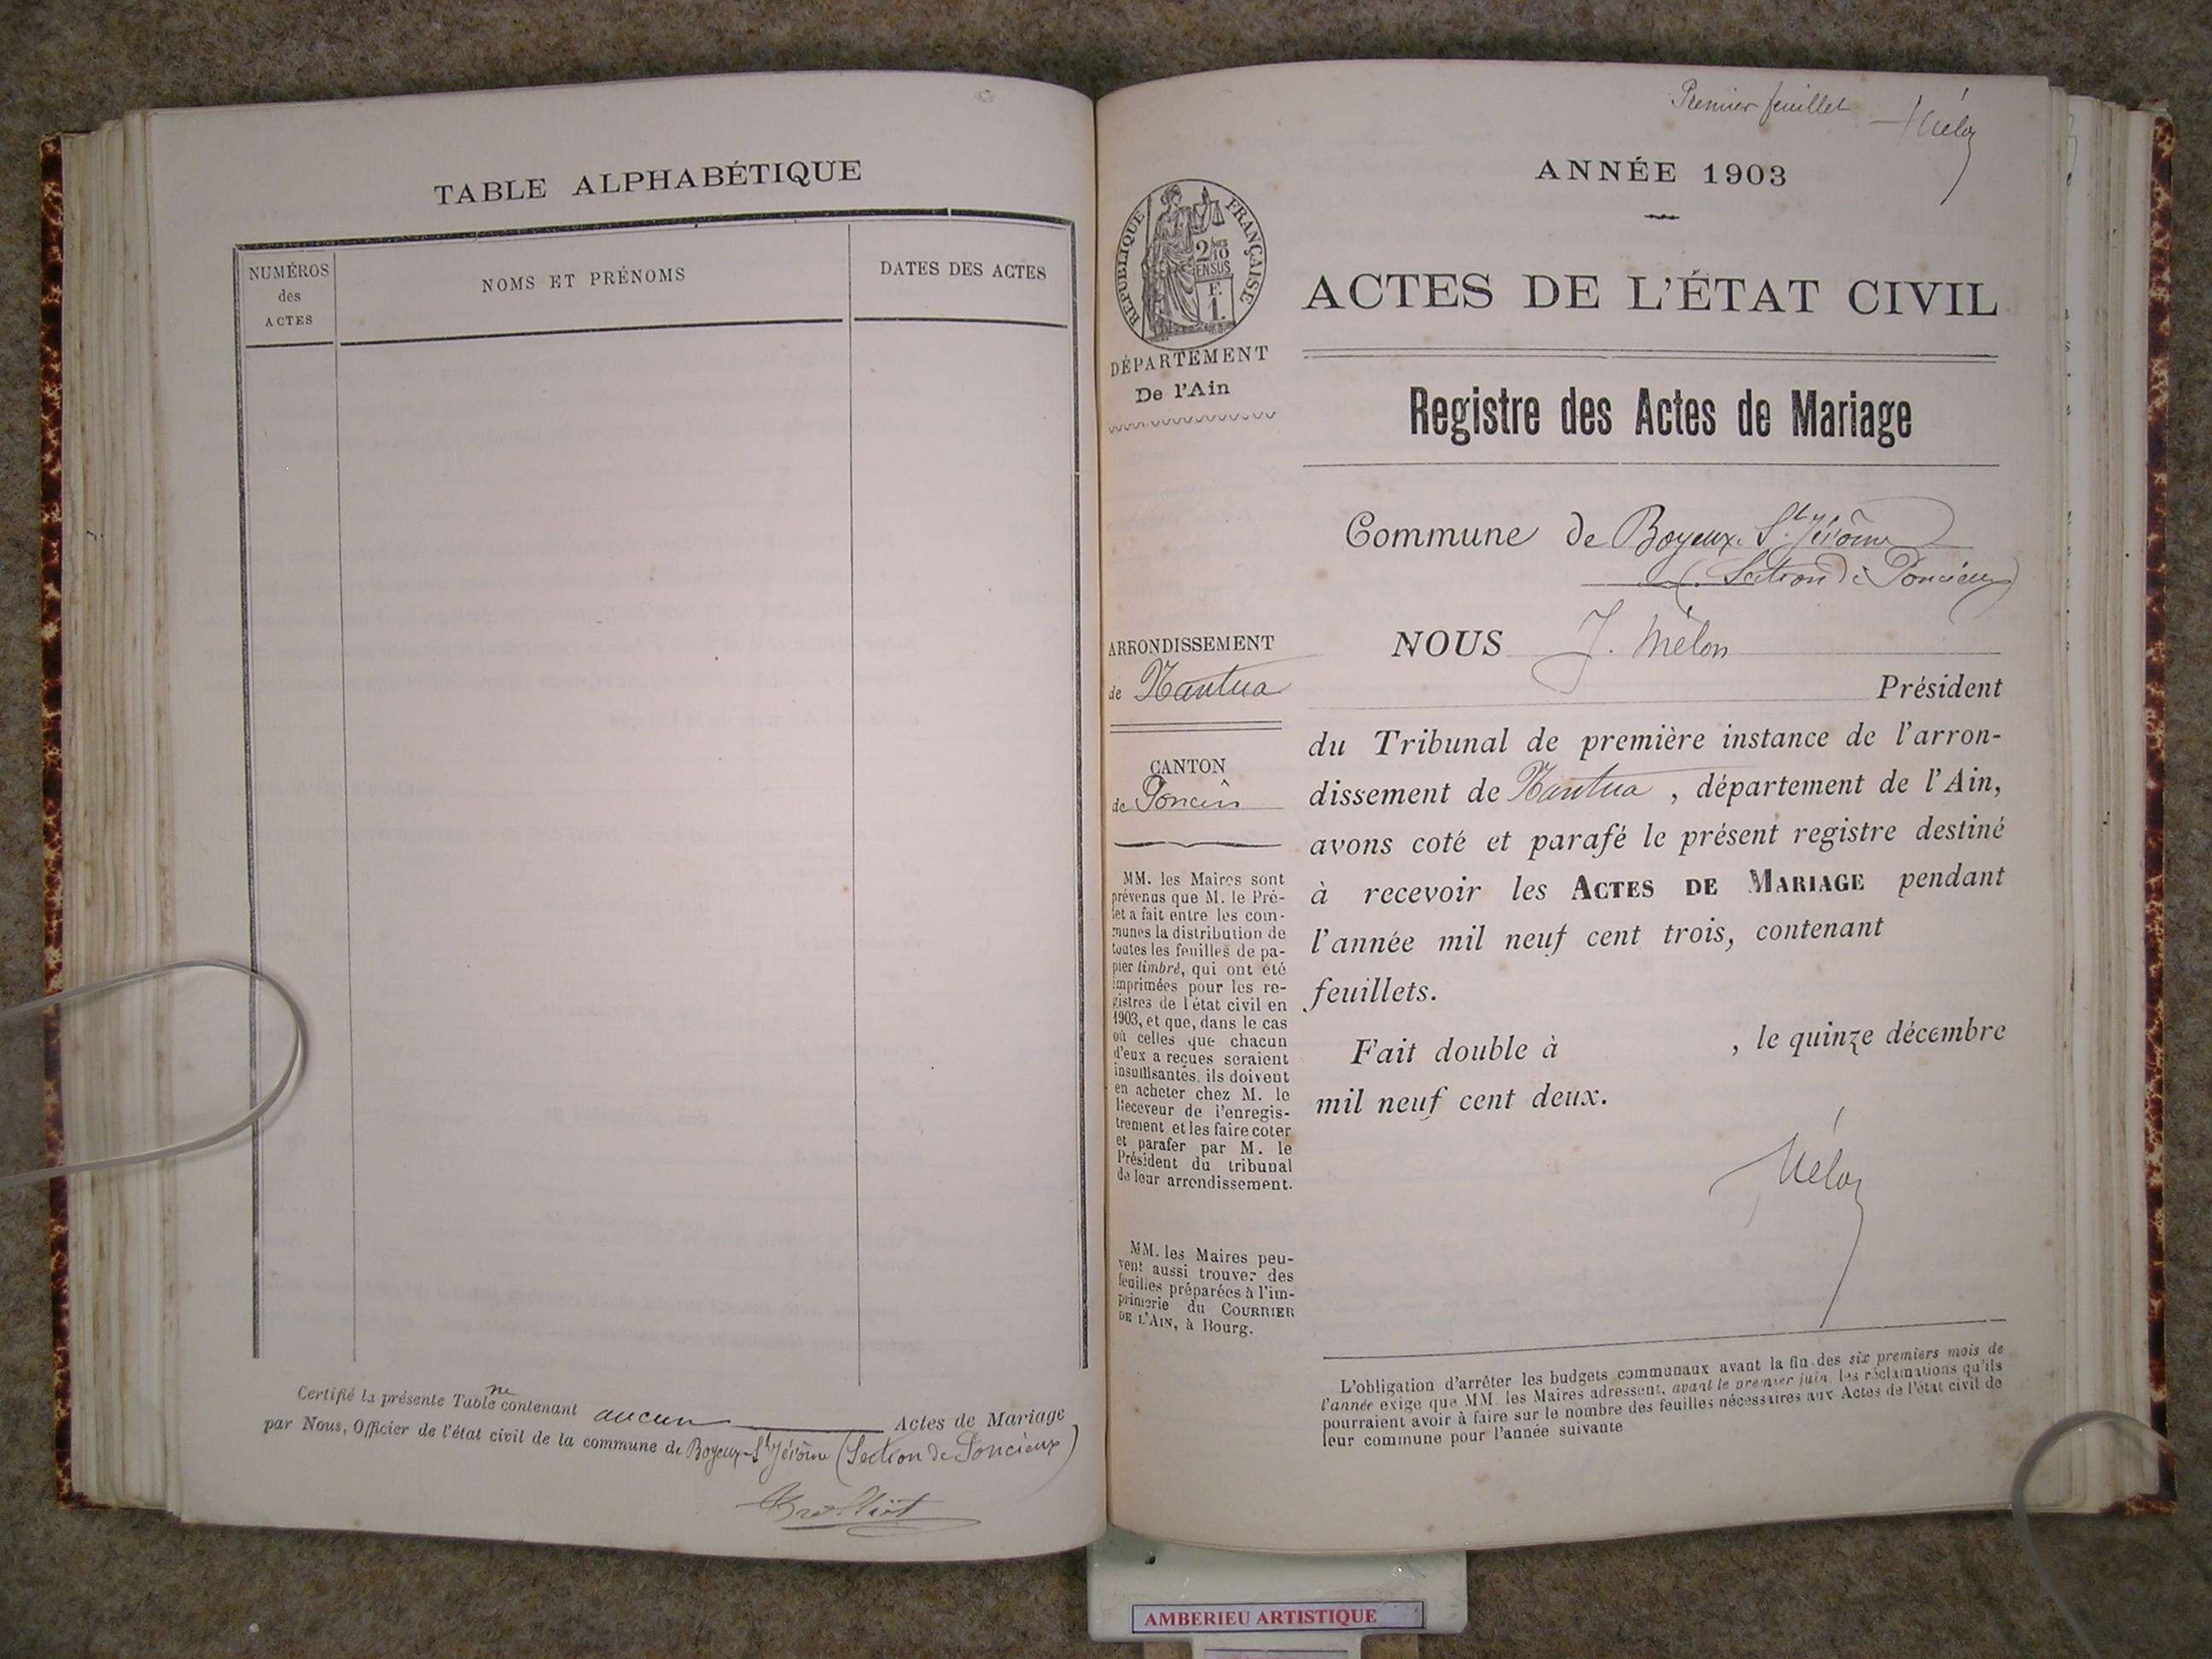 TABLE ALPHABÉTIQUE
NUMÉROS
des
ACTES
NOMS ET PRÉNOMS
DATES DES ACTES
Certifié la présente Table ne contenant aucun Actes de Mariage
par Nous, Officier de l'état civil de la commune de Boyeux-St Jérôme (Section de Poncieux)
Premier feuillet
ANNÉE 1903
RÉPUBLIQUE FRANÇAISE
2/10
EN SUS
F.
1.
DÉPARTEMENT
De l'Ain
ACTES DE L'ÉTAT CIVIL
Registre des Actes de Mariage
Commune de Boyeux-St Jérôme
(Section de Poncieux)
ARRONDISSEMENT
de Nantua
CANTON
de Poncin
MM. les Maires sont
prévenus que M. le Pré-
fet a fait entre les com-
munes la distribution de
toutes les feuilles de pa-
pier timbré, qui ont été
imprimées pour les re-
gistres de l'état civil en
1903, et que, dans le cas
où celles que chacun
d'eux a reçues seraient
insuffisantes, ils doivent
en acheter chez M. le
Receveur de l'enregis-
trement et les faire coter
et parafer par M. le
Président du tribunal
de leur arrondissement.
MM. les Maires peu-
vent aussi trouver des
feuilles préparées à l'im-
primerie du COURRIER
DE L'AIN, à Bourg.
NOUS J. Mélon
Président
du Tribunal de première instance de l'arron-
dissement de Nantua, département de l'Ain,
avons coté et parafé le présent registre destiné
à recevoir les ACTES DE MARIAGE pendant
l'année mil neuf cent trois, contenant
feuillets.
Fait double à , le quinze décembre
mil neuf cent deux.
Mélon
L'obligation d'arrêter les budgets communaux avant la fin des six premiers mois de
l'année exige que MM. les Maires adressent, avant le premier juin, les réclamations qu'ils
pourraient avoir à faire sur le nombre des feuilles nécessaires aux Actes de l'état civil de
leur commune pour l'année suivante
AMBERIEU ARTISTIQUE